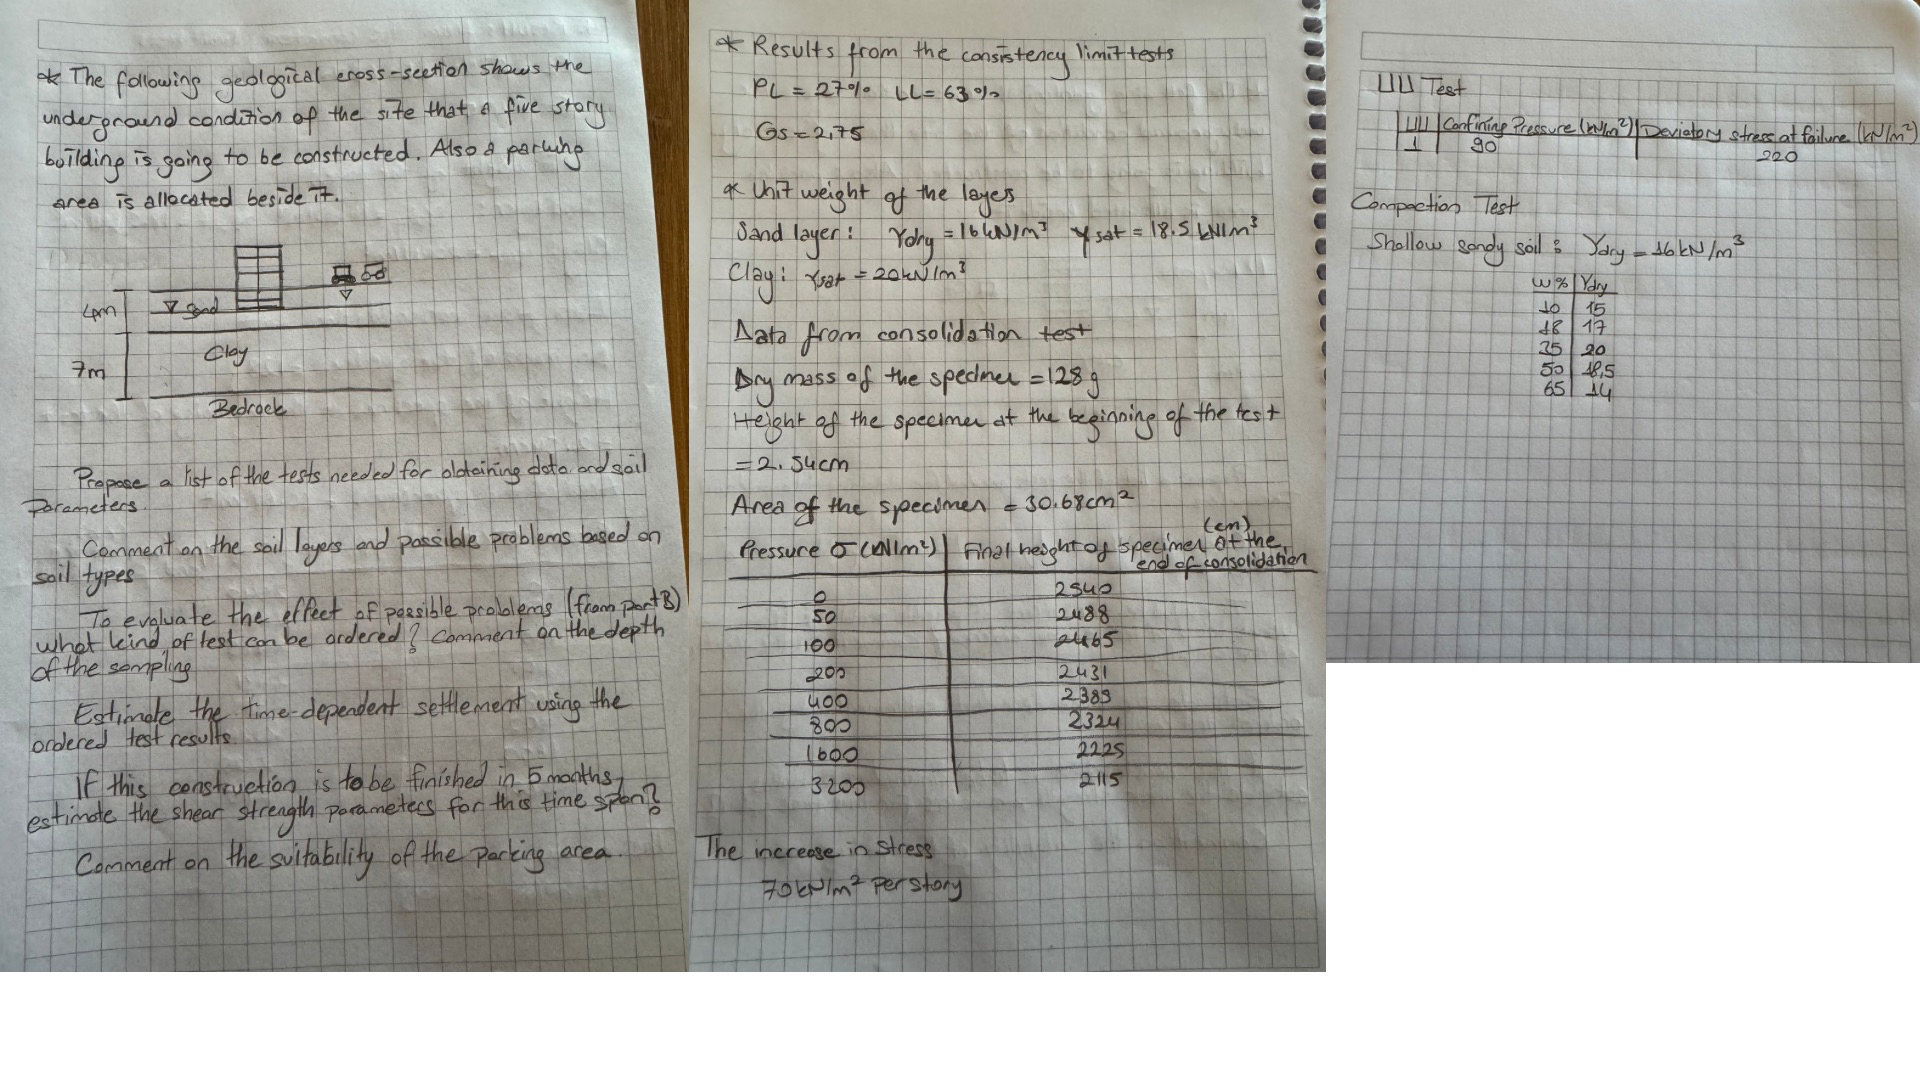 * The following geological cross-section shows the
underground condition of the site that a five story
building is going to be constructed. Also a parking
area is allocated beside it.
4m
Sand
Clay
7m
Bedrock
Propose a list of the tests needed for obtaining data and soil
Parameters.
Comment on the soil layers and possible problems based on
soil types
To evaluate the effect of possible problems (from part B)
what kind of test can be ordered? Comment on the depth
of the sampling
Estimate the time-dependent settlement using the
ordered test results
If this construction is to be finished in 5 months,
estimate the shear strength parameters for this time span?
Comment on the suitability of the parking area.
* Results from the consistency limit tests
PL = 27% LL = 63%
Gs = 2,75
* Unit weight of the layes
Sand layer: γdry = 16 kN/m³ γsat = 18.5 kN/m³
Clay: γsat = 20 kN/m³
Data from consolidation test
Dry mass of the specimen = 128 g
Height of the specimen at the beginning of the test
= 2.54cm
Area of the specimen = 30.68cm²
Pressure σ (kN/m²) | Final height of specimen at the
(cm)
end of consolidation
0 2540
50 2488
100 2465
200 2431
400 2389
800 2324
1600 2225
3200 2115
The increase in stress
70 kN/m² per story
UU Test
UU | Confining Pressure (kN/m²) | Deviatory stress at failure (kN/m²)
1 90 220
Compaction Test
Shallow sandy soil: γdry = 16 kN/m³
w% | γdry
10 15
18 17
35 20
50 18,5
65 14